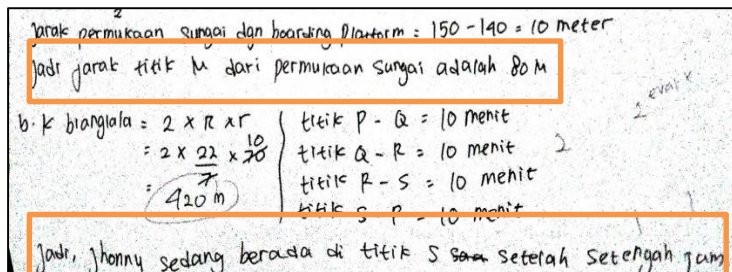 2
Jarak permukaan sungai dgn boarding Platform = 150 - 140 = 10 meter
Jadi jarak titik M dari permukaan sungai adalah 80 M
b. K bianglala = 2 × π × r
= 2 × 22/7 × 70 10
= 420 m
titik P - Q = 10 menit
titik Q - R = 10 menit 2
titik R - S = 10 menit
titik S - P = 10 menit
Jadi, Jhonny sedang berada di titik S setelah setengah jam